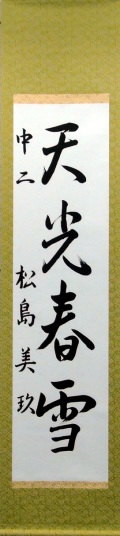 天光春雪
中二 松島美玖